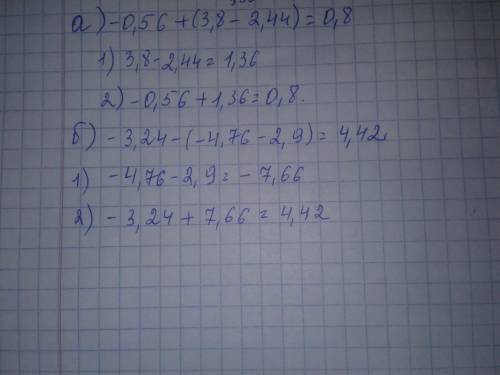 а) -0,56 + (3,8 - 2,44) = 0,8
1) 3,8 - 2,44 = 1,36
2) -0,56 + 1,36 = 0,8.
б) - 3,24 - (-4,76 - 2,9) = 4,42
1) -4,76 - 2,9 = - 7,66
2) - 3,24 + 7,66 = 4,42